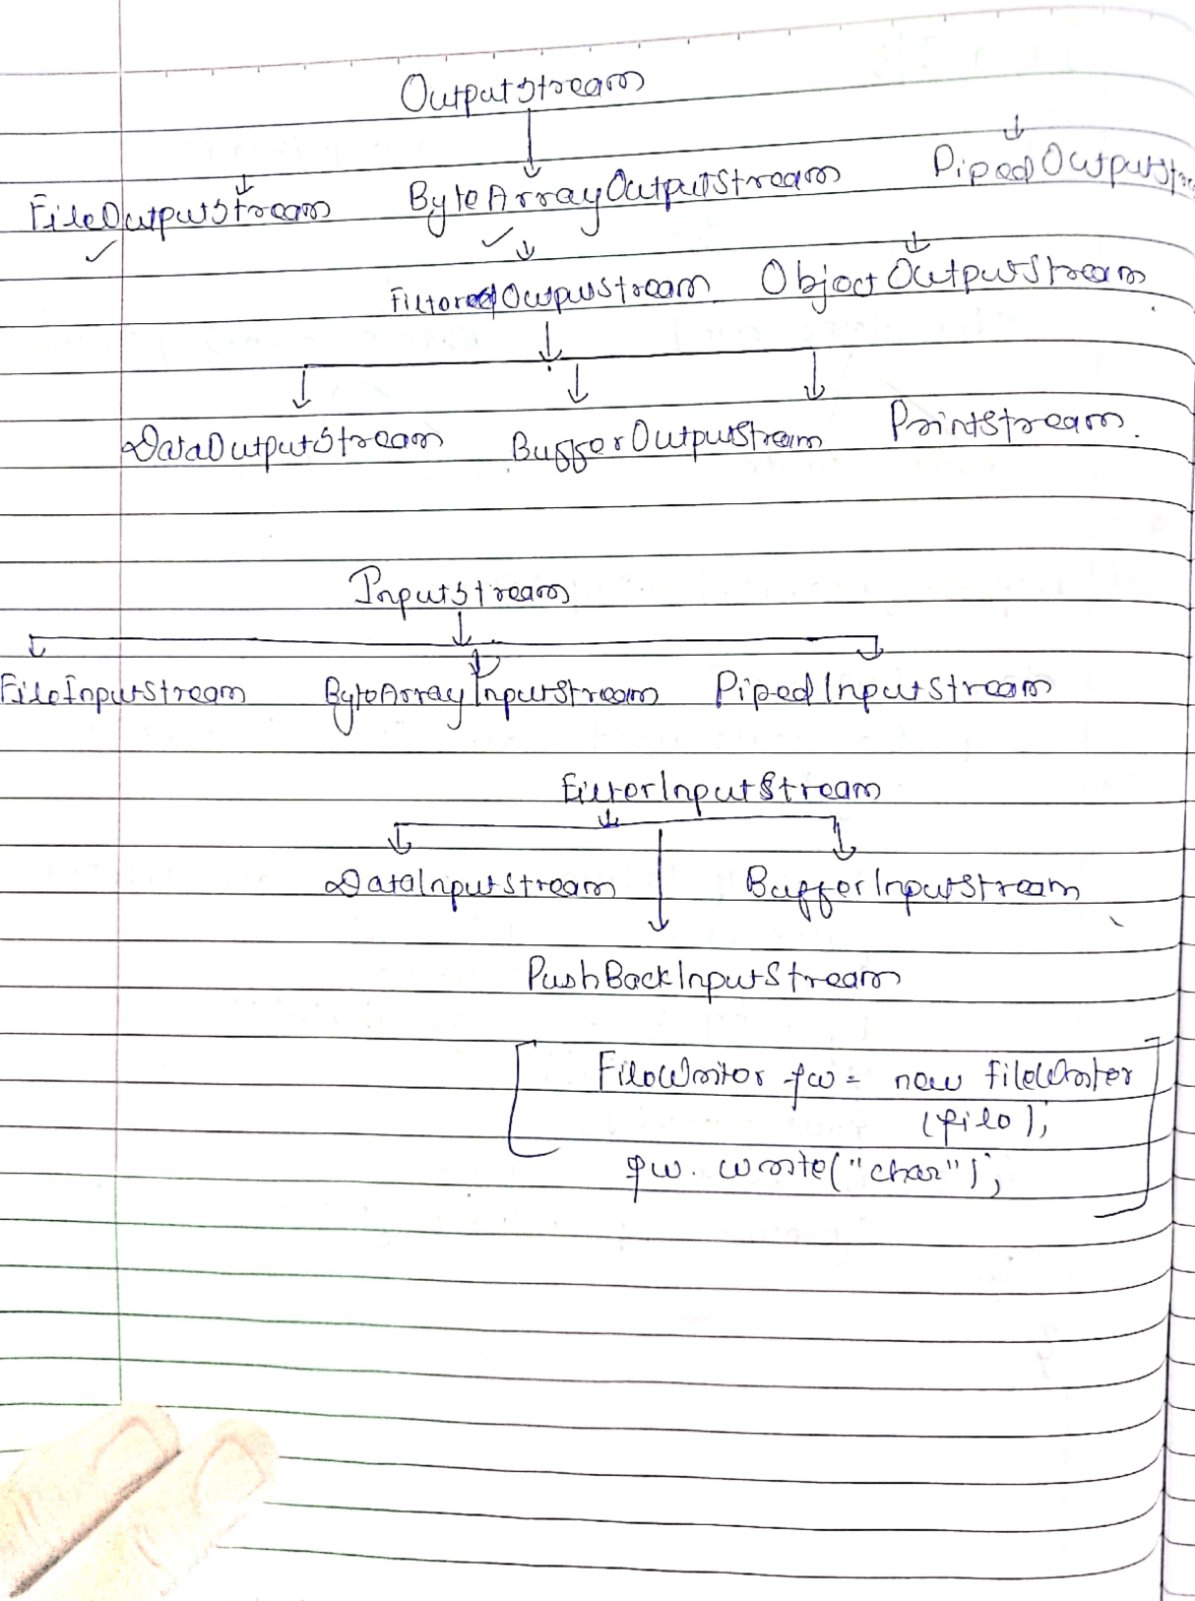 OutputStream
FileOutputStream ByteArrayOutputStream PipedOutputStre
FilteredOutputStream ObjectOutputStream
DataOutputStream BufferOutputStream PrintStream.
InputStream
FileInputStream ByteArrayInputStream PipedInputStream
FilterInputStream
DataInputStream BufferInputStream
PushBackInputStream
FileWriter fw = new fileWriter
(file);
fw. write("char");